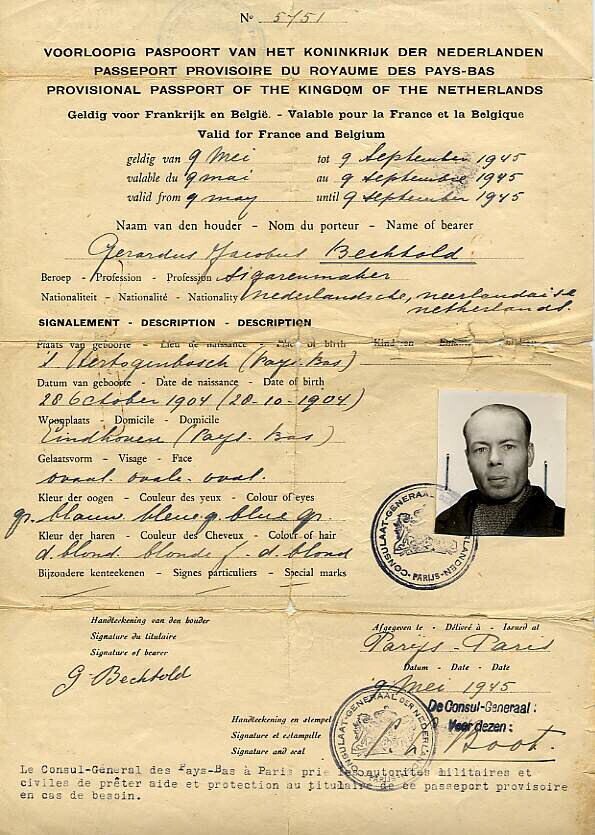 No 5/51
VOORLOOPIG PASPOORT VAN HET KONINKRIJK DER NEDERLANDEN
PASSEPORT PROVISOIRE DU ROYAUME DES PAYS-BAS
PROVISIONAL PASSPORT OF THE KINGDOM OF THE NETHERLANDS
Geldig voor Frankrijk en België. - Valable pour la France et la Belgique
Valid for France and Belgium
geldig van 9 Mei tot 9 September 1945
valable du 9 mai au 9 Septembre 1945
valid from 9 may until 9 September 1945
Naam van den houder - Nom du porteur - Name of bearer
Gerardus Jacobus Bechtold.
Beroep - Profession - Profession Sigarenmaker
Nationaliteit - Nationalité - Nationality nederlandsche, neerlandaise
netherlands.
SIGNALEMENT - DESCRIPTION - DESCRIPTION
Plaats van geboorte - Lieu de naissance - Place of birth Kinderen Enfants
's Hertogenbosch (Pays Bas)
Datum van geboorte - Date de naissance - Date of birth
28 October 1904 (28-10-1904)
Woonplaats - Domicile - Domicile
Eindhoven (Pays-Bas)
Gelaatsvorm - Visage - Face
ovaal. ovale. oval.
Kleur der oogen - Couleur des yeux - Colour of eyes
gr. blauw bleu g. blue gr.
Kleur der haren - Couleur des Cheveux - Colour of hair
d. blond. blonde f. d. blond
Bijzondere kenteekenen - Signes particuliers - Special marks
CONSULAAT-GENERAAL DER NEDERLANDEN
PARIJS
Handteekening van den houder
Signature du titulaire
Signature of bearer
G. Bechtold
Afgegeven te - Délivré à - Issued at
Parijs - Paris
Datum - Date - Date
9 Mei 1945
De Consul-Generaal:
Voor dezen:
Boot.
Handteekening en stempel
Signature et estampille
Signature and seal
CONSULAAT-GENERAAL DER NEDERLANDEN
PARIJS
Le Consul-Général des Pays-Bas à Paris prie les autorités militaires et
civiles de prêter aide et protection au titulaire de ce passeport provisoire
en cas de besoin.